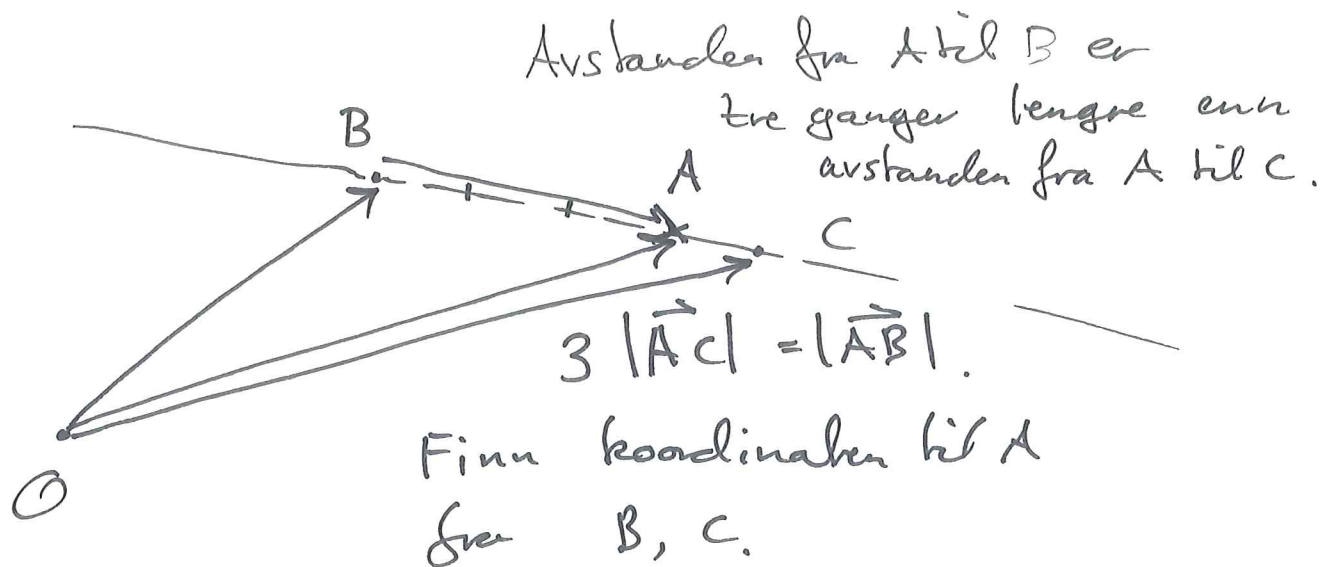 Avstanden fra A til B er
tre ganger lengre enn
avstanden fra A til C.
B
A
C
3 |\vec{AC}| = |\vec{AB}|.
O
Finn koordinaten til A
fra B, C.